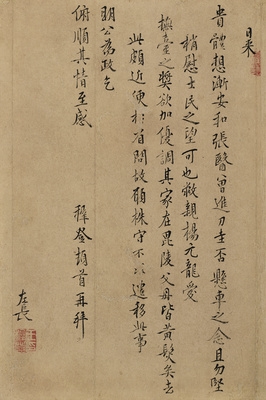 日來
貴體想漸安和張醫曾進刀圭否懸車之念且勿堅
稍慰士民之望可也敝親楊元龍愛
撫臺之獎欲加優調其家在毘陵父母皆黃髮矣去
此頗近便於省問故願株守不以遷移此事
明公為政乞
俯順其情至感
登頓首再拜
左長